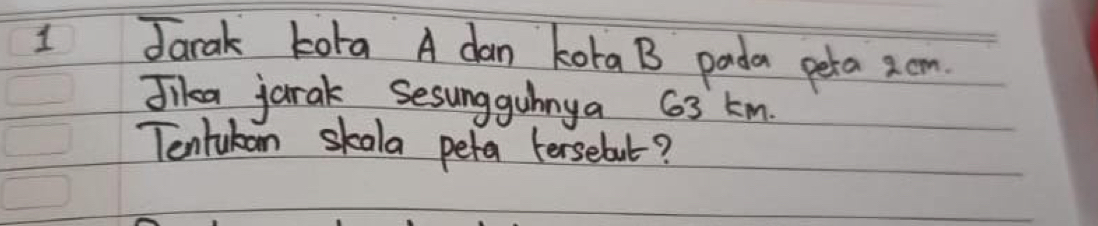 1 Jarak kota A dan kota B pada peta 2 cm.
Jika jarak sesungguhnya 63 km.
Tentukan skala peta tersebut?